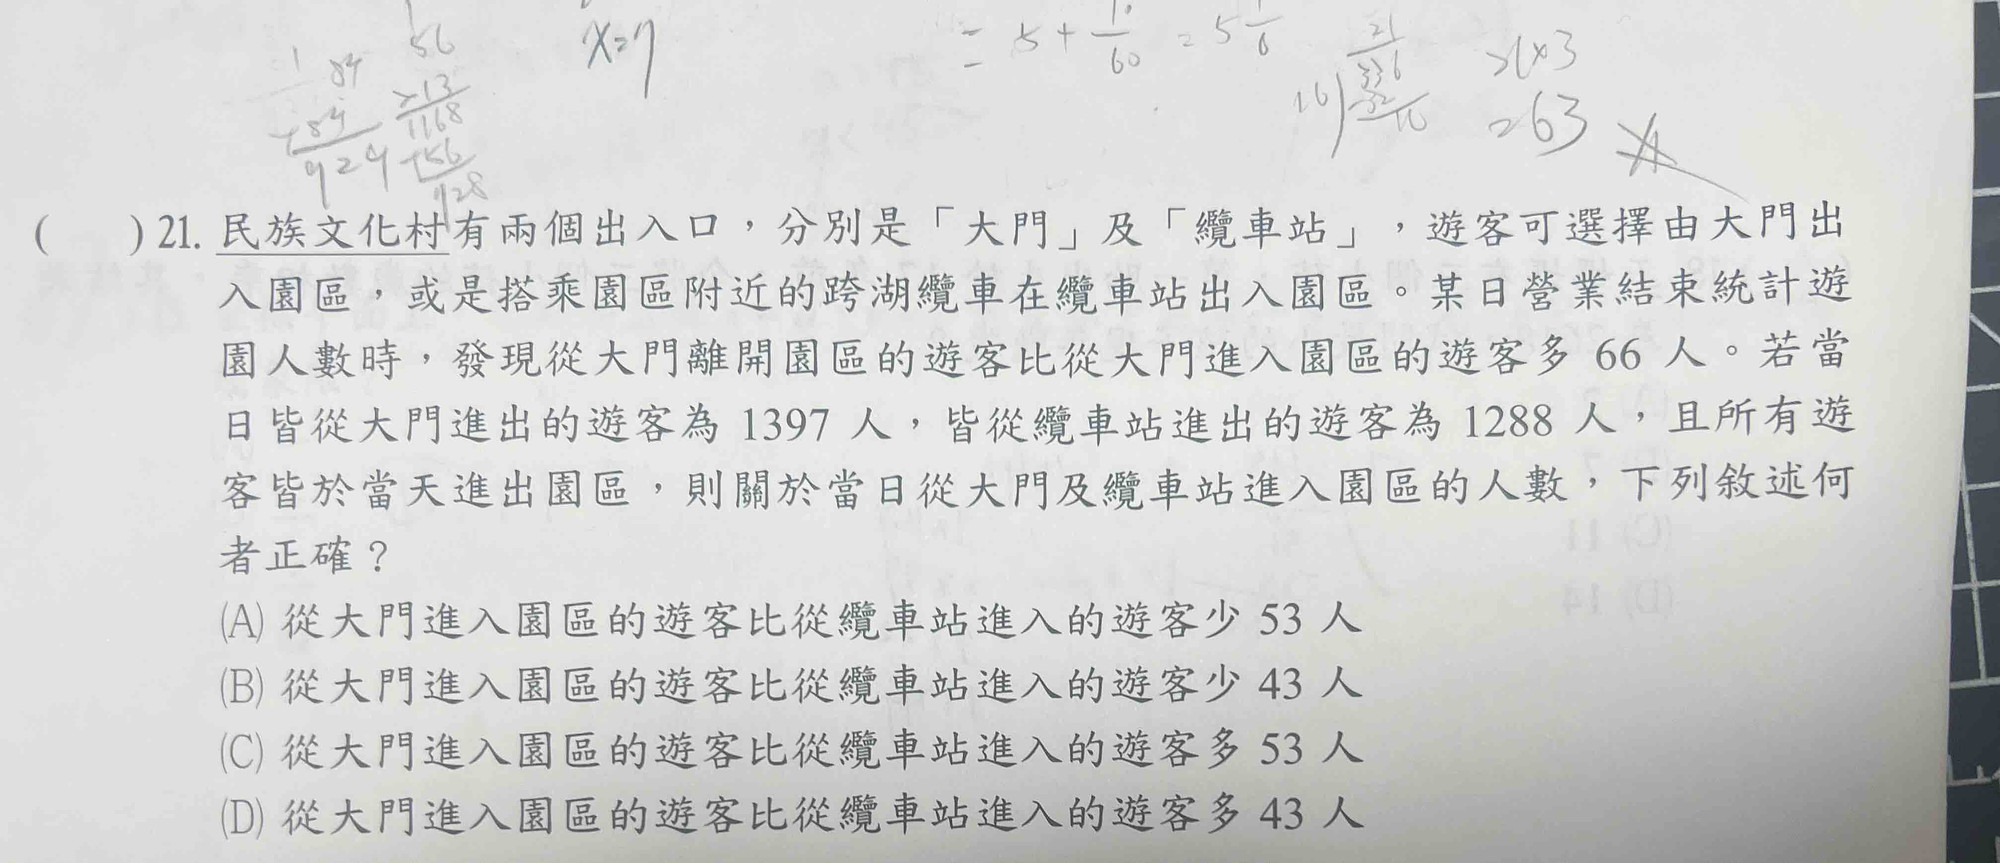 56
x=7
= 5 + 10/60 = 5 1/6
21
21×3
=63
( ) 21. 民族文化村有兩個出入口，分別是「大門」及「纜車站」，遊客可選擇由大門出
入園區，或是搭乘園區附近的跨湖纜車在纜車站出入園區。某日營業結束統計遊
園人數時，發現從大門離開園區的遊客比從大門進入園區的遊客多 66 人。若當
日皆從大門進出的遊客為 1397 人，皆從纜車站進出的遊客為 1288 人，且所有遊
客皆於當天進出園區，則關於當日從大門及纜車站進入園區的人數，下列敘述何
者正確？
(A) 從大門進入園區的遊客比從纜車站進入的遊客少 53 人
(B) 從大門進入園區的遊客比從纜車站進入的遊客少 43 人
(C) 從大門進入園區的遊客比從纜車站進入的遊客多 53 人
(D) 從大門進入園區的遊客比從纜車站進入的遊客多 43 人